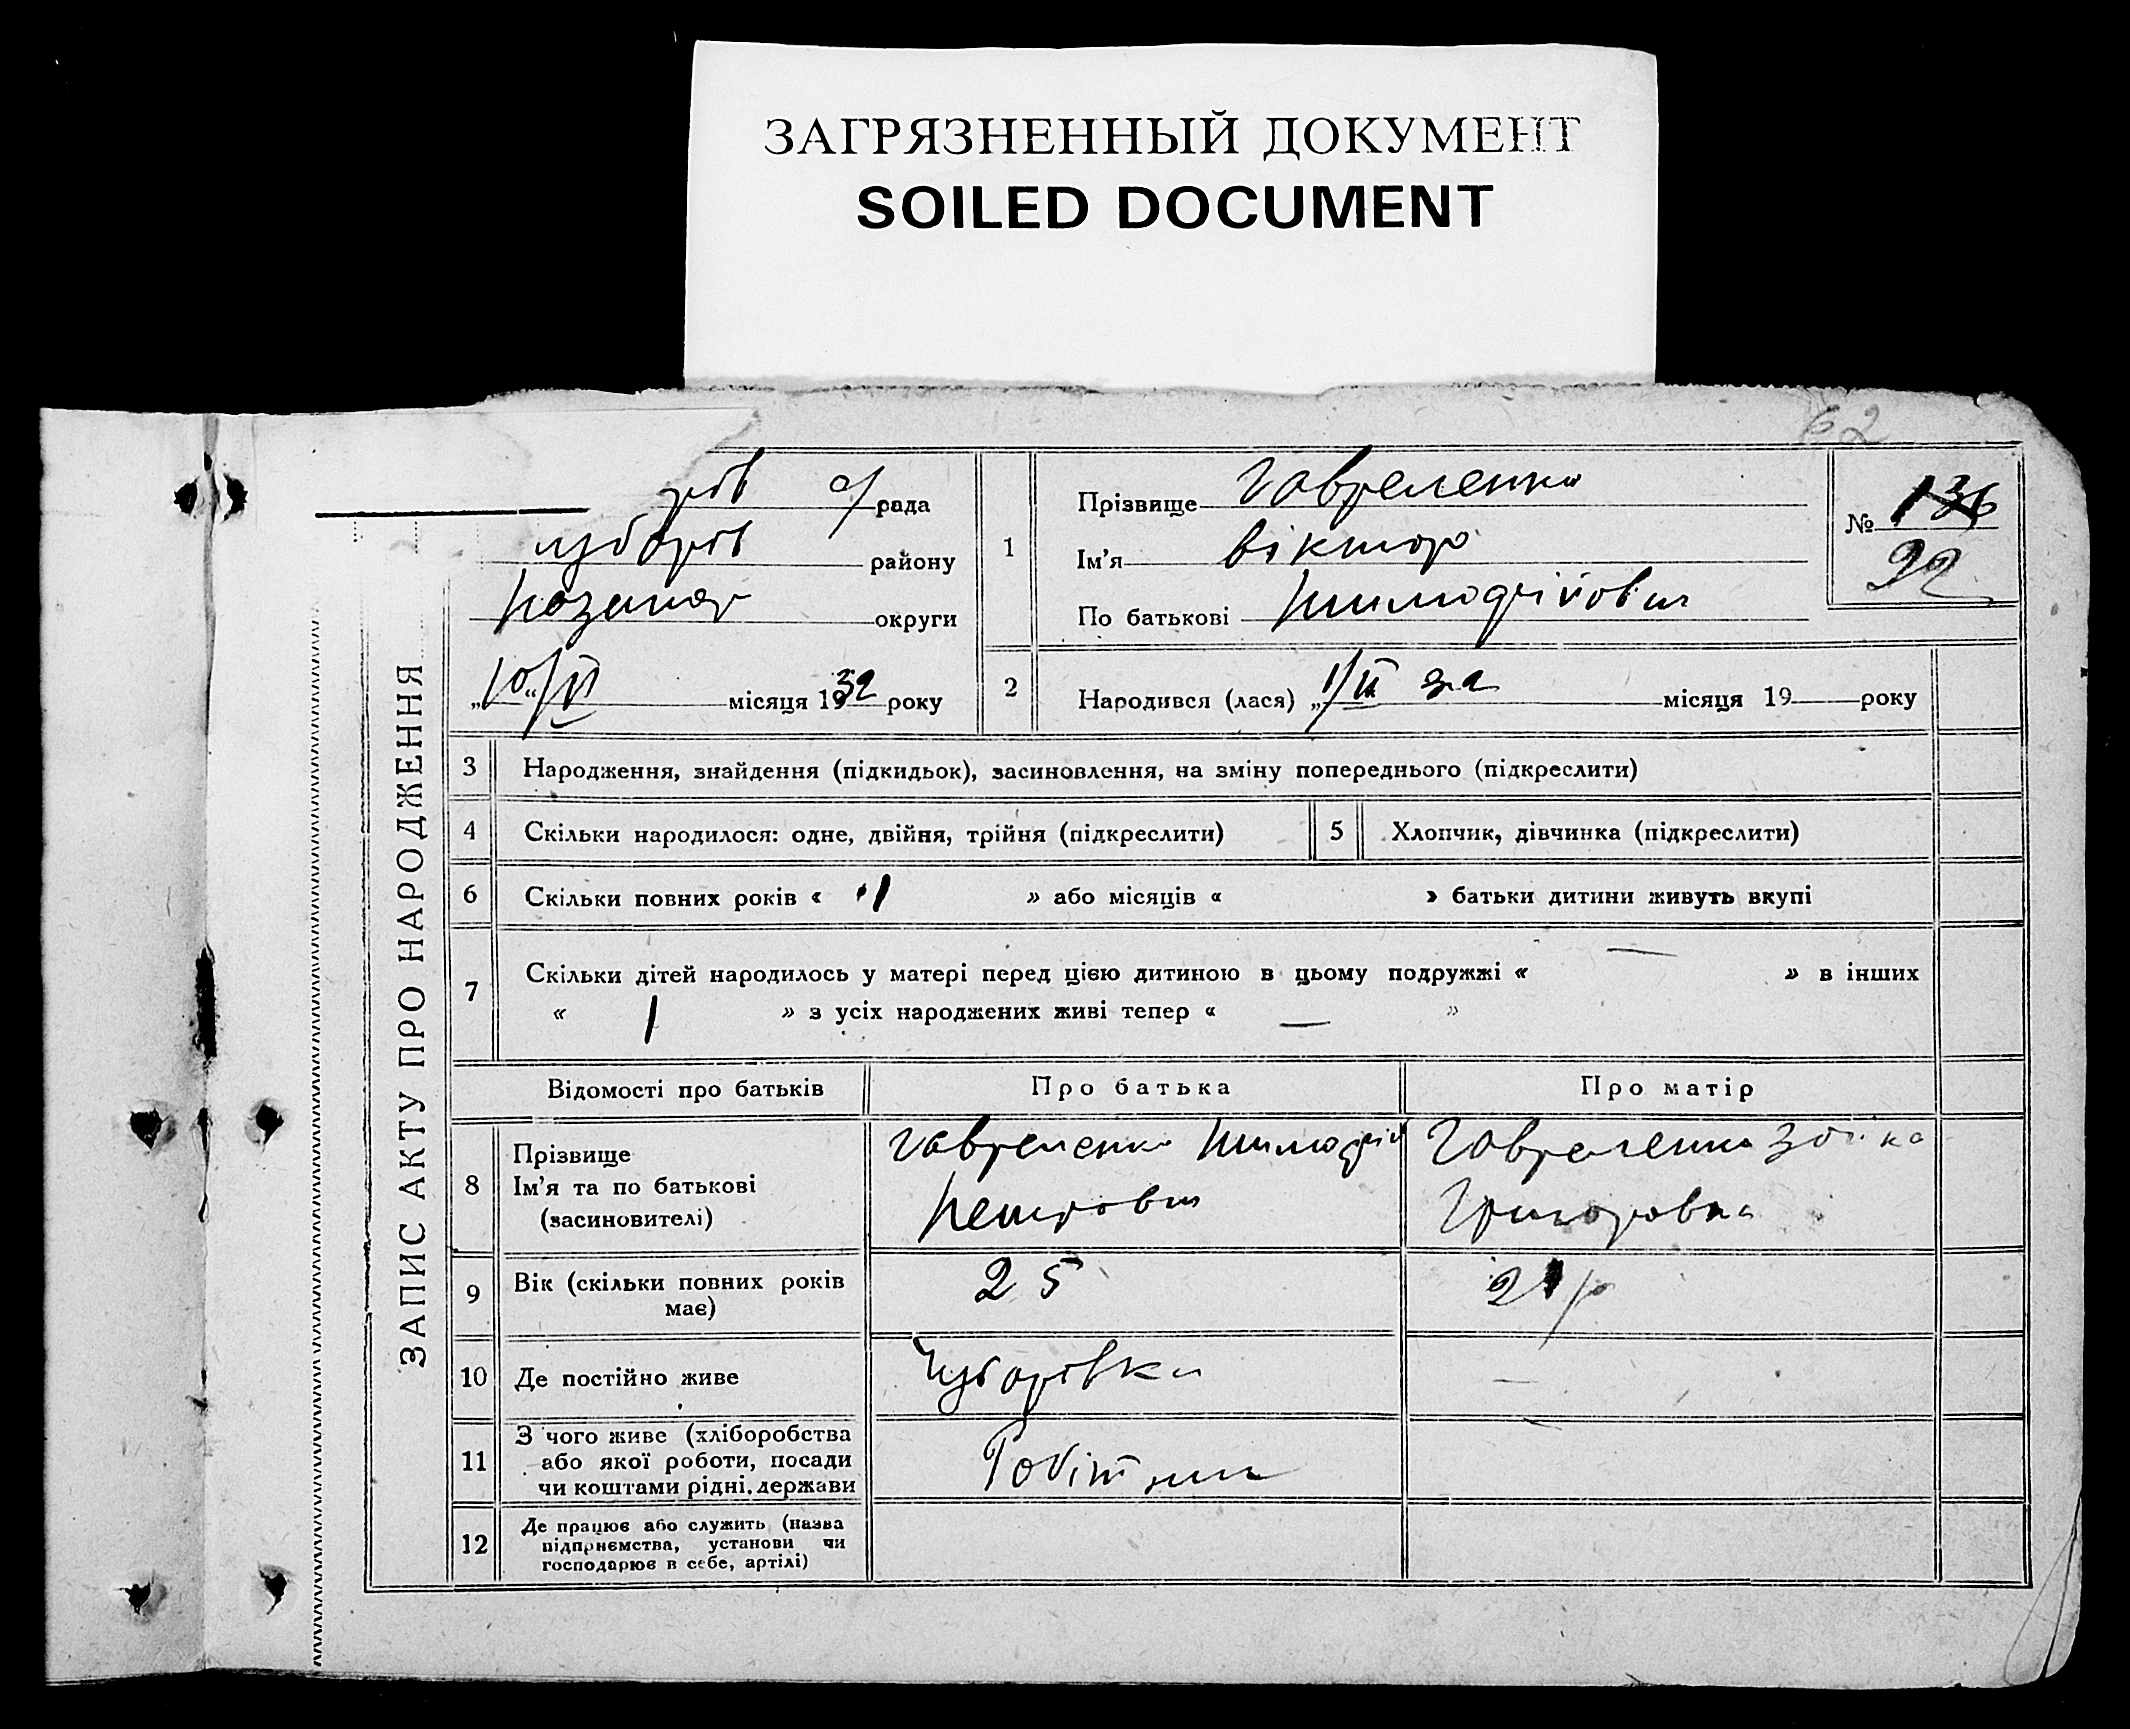 ЗАГРЯЗНЕННЫЙ ДОКУМЕНТ
SOILED DOCUMENT
62
рада
району
округи
„10“/VI місяця 1932 року
ЗАПИС АКТУ ПРО НАРОДЖЕННЯ
1
Прізвище Гавреленко
Ім’я Віктор
По батькові
№ 136
92
2
Народився (лася) „1/II 32 місяця 19 року
3 Народження, знайдення (підкидьок), засиновлення, на зміну попереднього (підкреслити)
4 Скільки народилося: одне, двійня, трійня (підкреслити)
5 Хлопчик, дівчинка (підкреслити)
6 Скільки повних років « 1 » або місяців « » батьки дитини живуть вкупі
7 Скільки дітей народилось у матері перед цією дитиною в цьому подружжі « — » в інших
« 1 » з усіх народжених живі тепер « — »
Відомості про батьків
Про батька
Про матір
8
Прізвище
Ім’я та по батькові
(засиновителі)
Гавреленко
Петрович
Гавреленко
Григоровна
9
Вік (скільки повних років
має)
25
10 Де постійно живе
—
11
З чого живе (хліборобства
або якої роботи, посади
чи коштами рідні, держави
12
Де працює або служить (назва
підприємства, установи чи
господарює в себе, артілі)